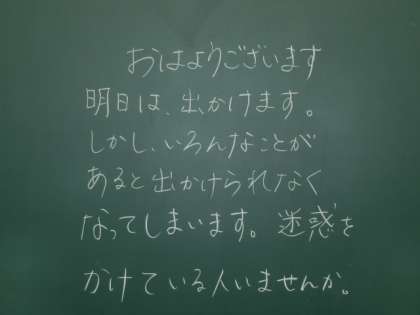 おはようございます
明日は、出かけます。
しかし、いろんなことが
あると出かけられなく
なってしまいます。迷惑を
かけている人いませんか。